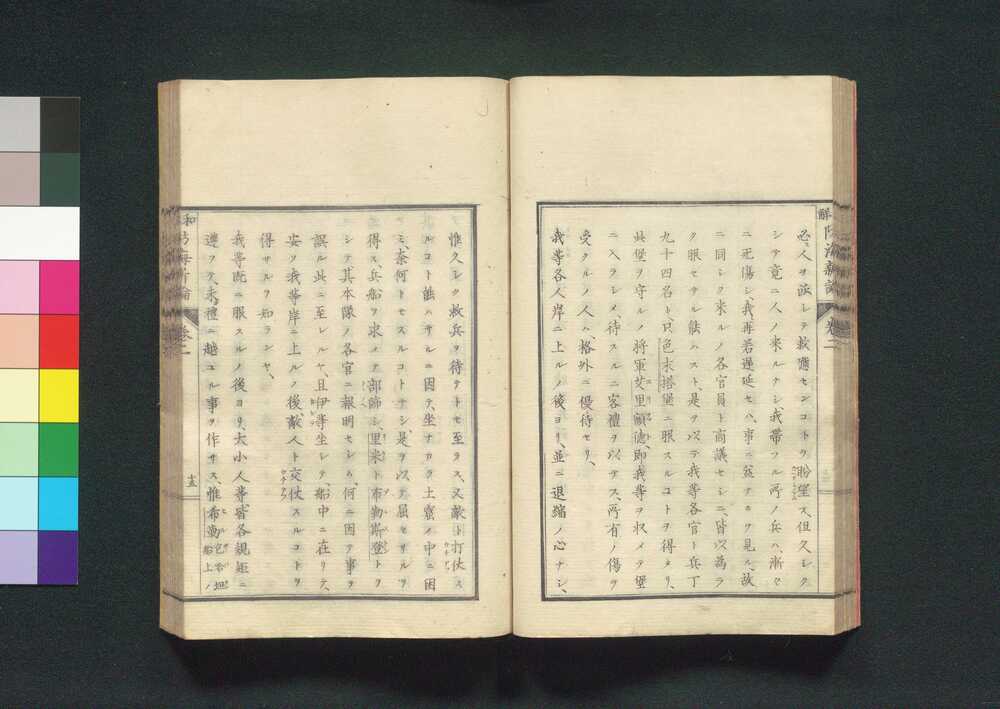 必ス人ヲ派シテ救應センコトヲ盼望ス、但久シク
シテ竟ニ人ノ來ルナシ我帶フル所ノ兵ハ、漸々
ニ死傷シ、我再若遲延セハ、事ニ益ナキヲ見ル、故
ニ同シク來ルノ各官員ト商議セシニ、皆以為ラ
ク服セサル能ハスト、是ヲ以テ我等各官ト兵丁
九十四名ト、只色末塔堡ニ服スルコトヲ得タリ、
此堡ヲ守ルノ將軍艾里顧德、即我等ヲ収メテ堡
ニ入ラシメ、待スルニ客禮ヲ以テス、所有ノ傷ヲ
受クルノ人ハ、格外ニ優待セリ、
我等各人岸ニ上ルノ後ヨリ、並ニ退縮ノ心ナシ、
惟久シク救兵ヲ待テトモ至ラス、又敵ト打仗ス
ルコト能ハサルニ因テ、坐ナカラ土窰ノ中ニ困
ミ、奈何トモスルコトナシ、是ヲ以テ屈セリルヲ
得ス、兵船ヲ求メテ部師シ、里米ト布勒斯登トヲ
シテ其本隊ノ各官ニ報明セシム、何ニ因テ事ヲ
誤ル此ニ至レルヤ、且伊等坐シテ船中ニ在リテ、
安ソ我等岸ニ上ルノ後敵人ト交仗スルコトヲ
得サルヲ知ランヤ、
我等既ニ服スルノ後ヨリ、大小人等皆各規矩ニ
遵フテ、未禮ニ越ユル事ヲ作サス、惟希勒
船上ノ
卷二
十五